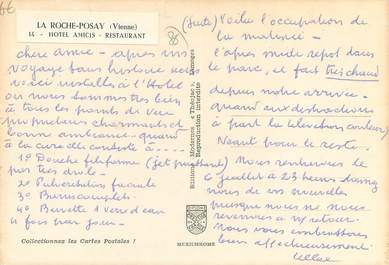 LA ROCHE-POSAY (Vienne)
14 - HOTEL AMICIS - RESTAURANT
chère amie - après un
voyage sans histoire nous
voici installés à l'Hôtel
où nous sommes très bien
à tous les points de vue
propriétaires charmants
bonne ambiance - quand
à la cure elle consiste à
1º Douche filiforme (jet
pas très drôle -
2º Pulvérisation faciale
3º
4º Buvette 1 verre d'eau
4 fois par jour -
Collectionnez les Cartes Postales !
Editions Modernes « Théojac », Limoges
Reproduction interdite
MEXICHROME
(suite) Voilà l'occupation de
la matinée -
l'après midi repos dans
le parc, il fait très chaud
depuis notre arrivée -
quand aux distractions
à part la télévision (couleur)
Néant pour le reste.
Nous rentrerons le
jeudi à 23 heures
nous de vos nouvelles
puisque nous ne nous
reverrons à
Nous vous embrassons
bien affectueusement